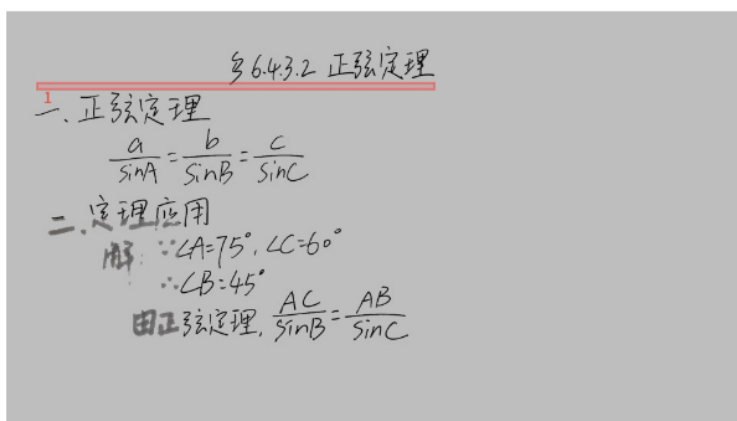 §6.4.3.2 正弦定理
1
一、正弦定理
a/sinA = b/sinB = c/sinC
二、定理应用
解: ∵∠A=75°, ∠C=60°
∴∠B=45°
由正弦定理, AC/sinB = AB/sinC